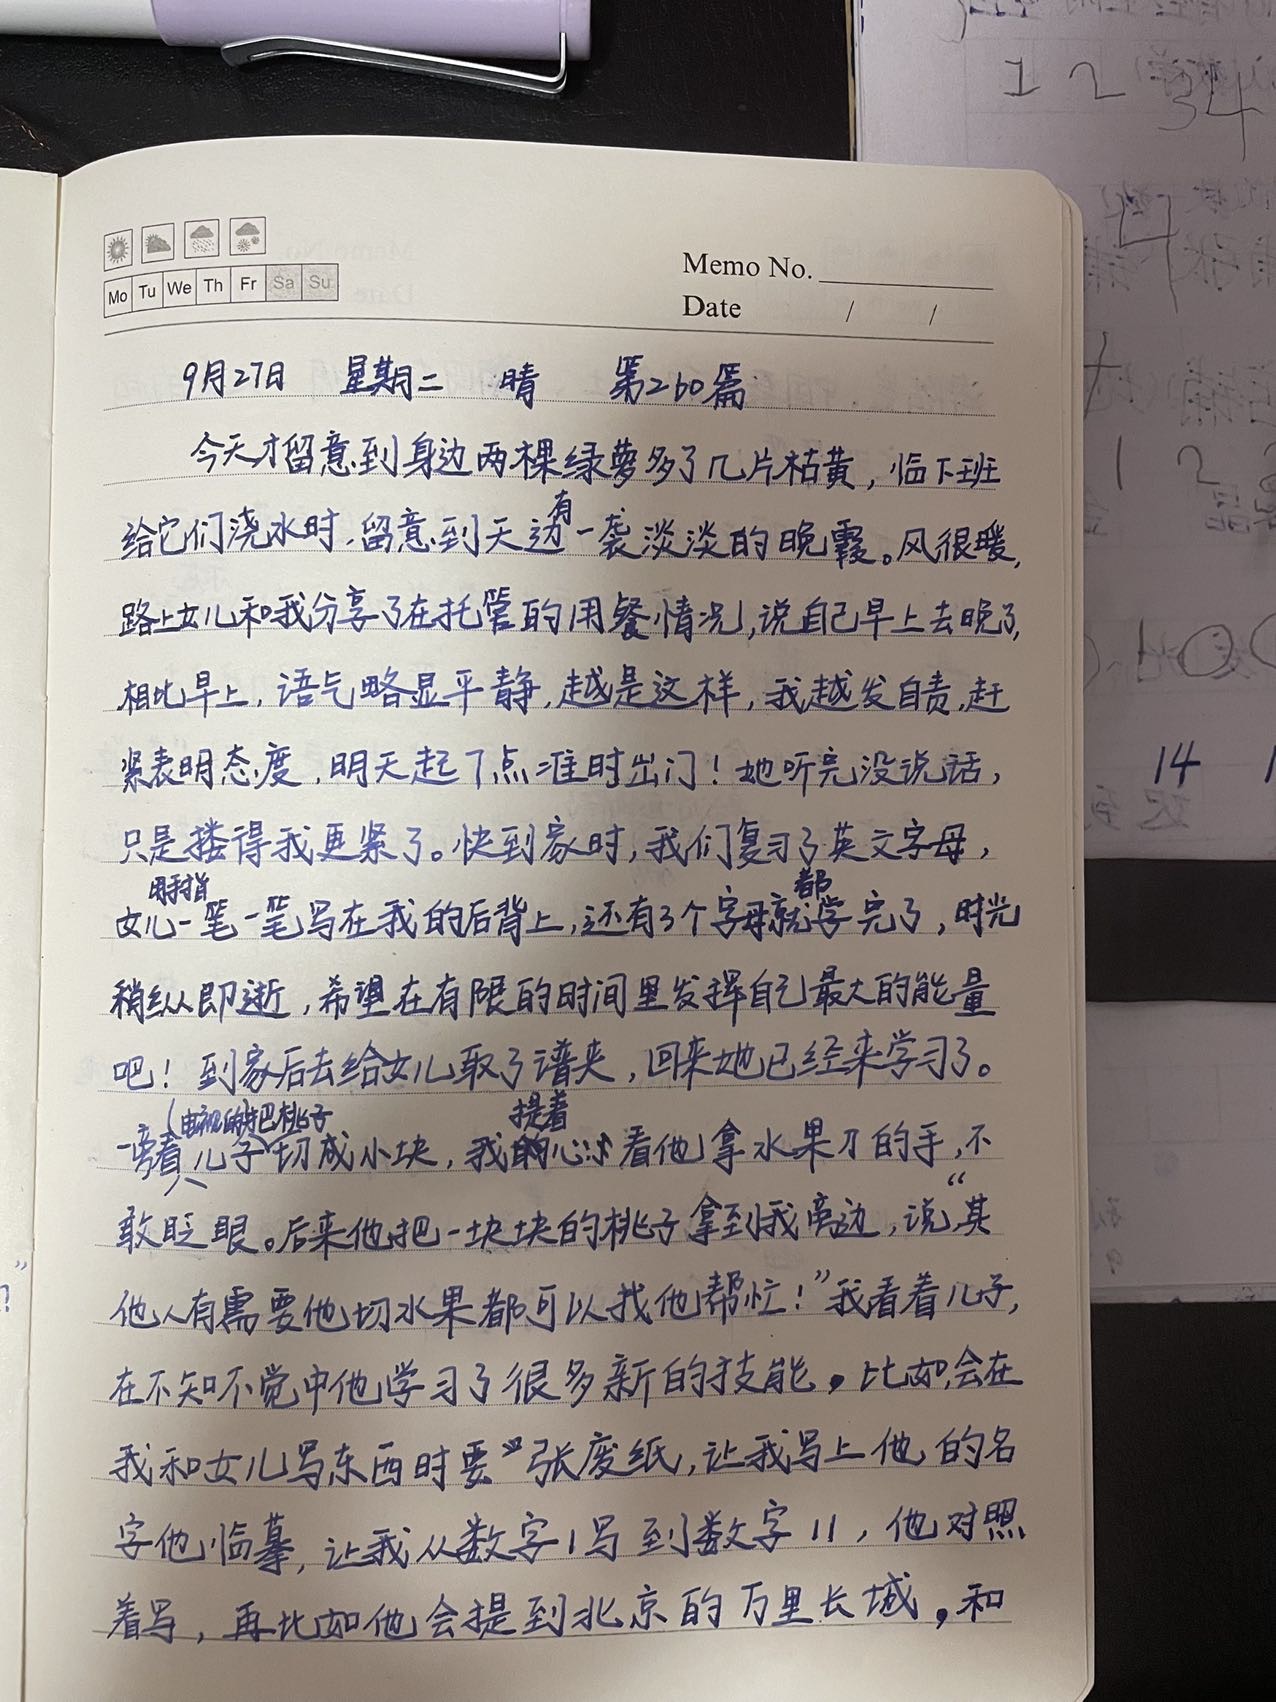 Mo Tu We Th Fr Sa Su
Memo No.
Date / /
9月27日 星期二 晴 第260篇
今天才留意到身边两棵绿萝多了几片枯黄，临下班
给它们浇水时，留意到天边有一袭淡淡的晚霞。风很暖，
路上女儿和我分享了在托管的用餐情况，说自己早上去晚了，
相比早上，语气略显平静，越是这样，我越发自责，赶
紧表明态度，明天起7点准时出门！她听完没说话，
只是搂得我更紧了。快到家时，我们复习了英文字母，
女儿用手指一笔一笔写在我的后背上，还有3个字母就都学完了，时光
稍纵即逝，希望在有限的时间里发挥自己最大的能量
吧！到家后去给女儿取了谱夹，回来她已经来学习了。
一旁看儿子把桃子切成小块，我提着心看他拿水果刀的手，不
敢眨眼。后来他把一块块的桃子拿到我旁边，说“其
他人有需要他切水果都可以找他帮忙！”我看着儿子，
在不知不觉中他学习了很多新的技能。比如，会在
我和女儿写东西时要张废纸，让我写上他的名
字他临摹，让我从数字1写到数字11，他对照
着写，再比如他会提到北京的万里长城，和
1 2 34
1 2
14